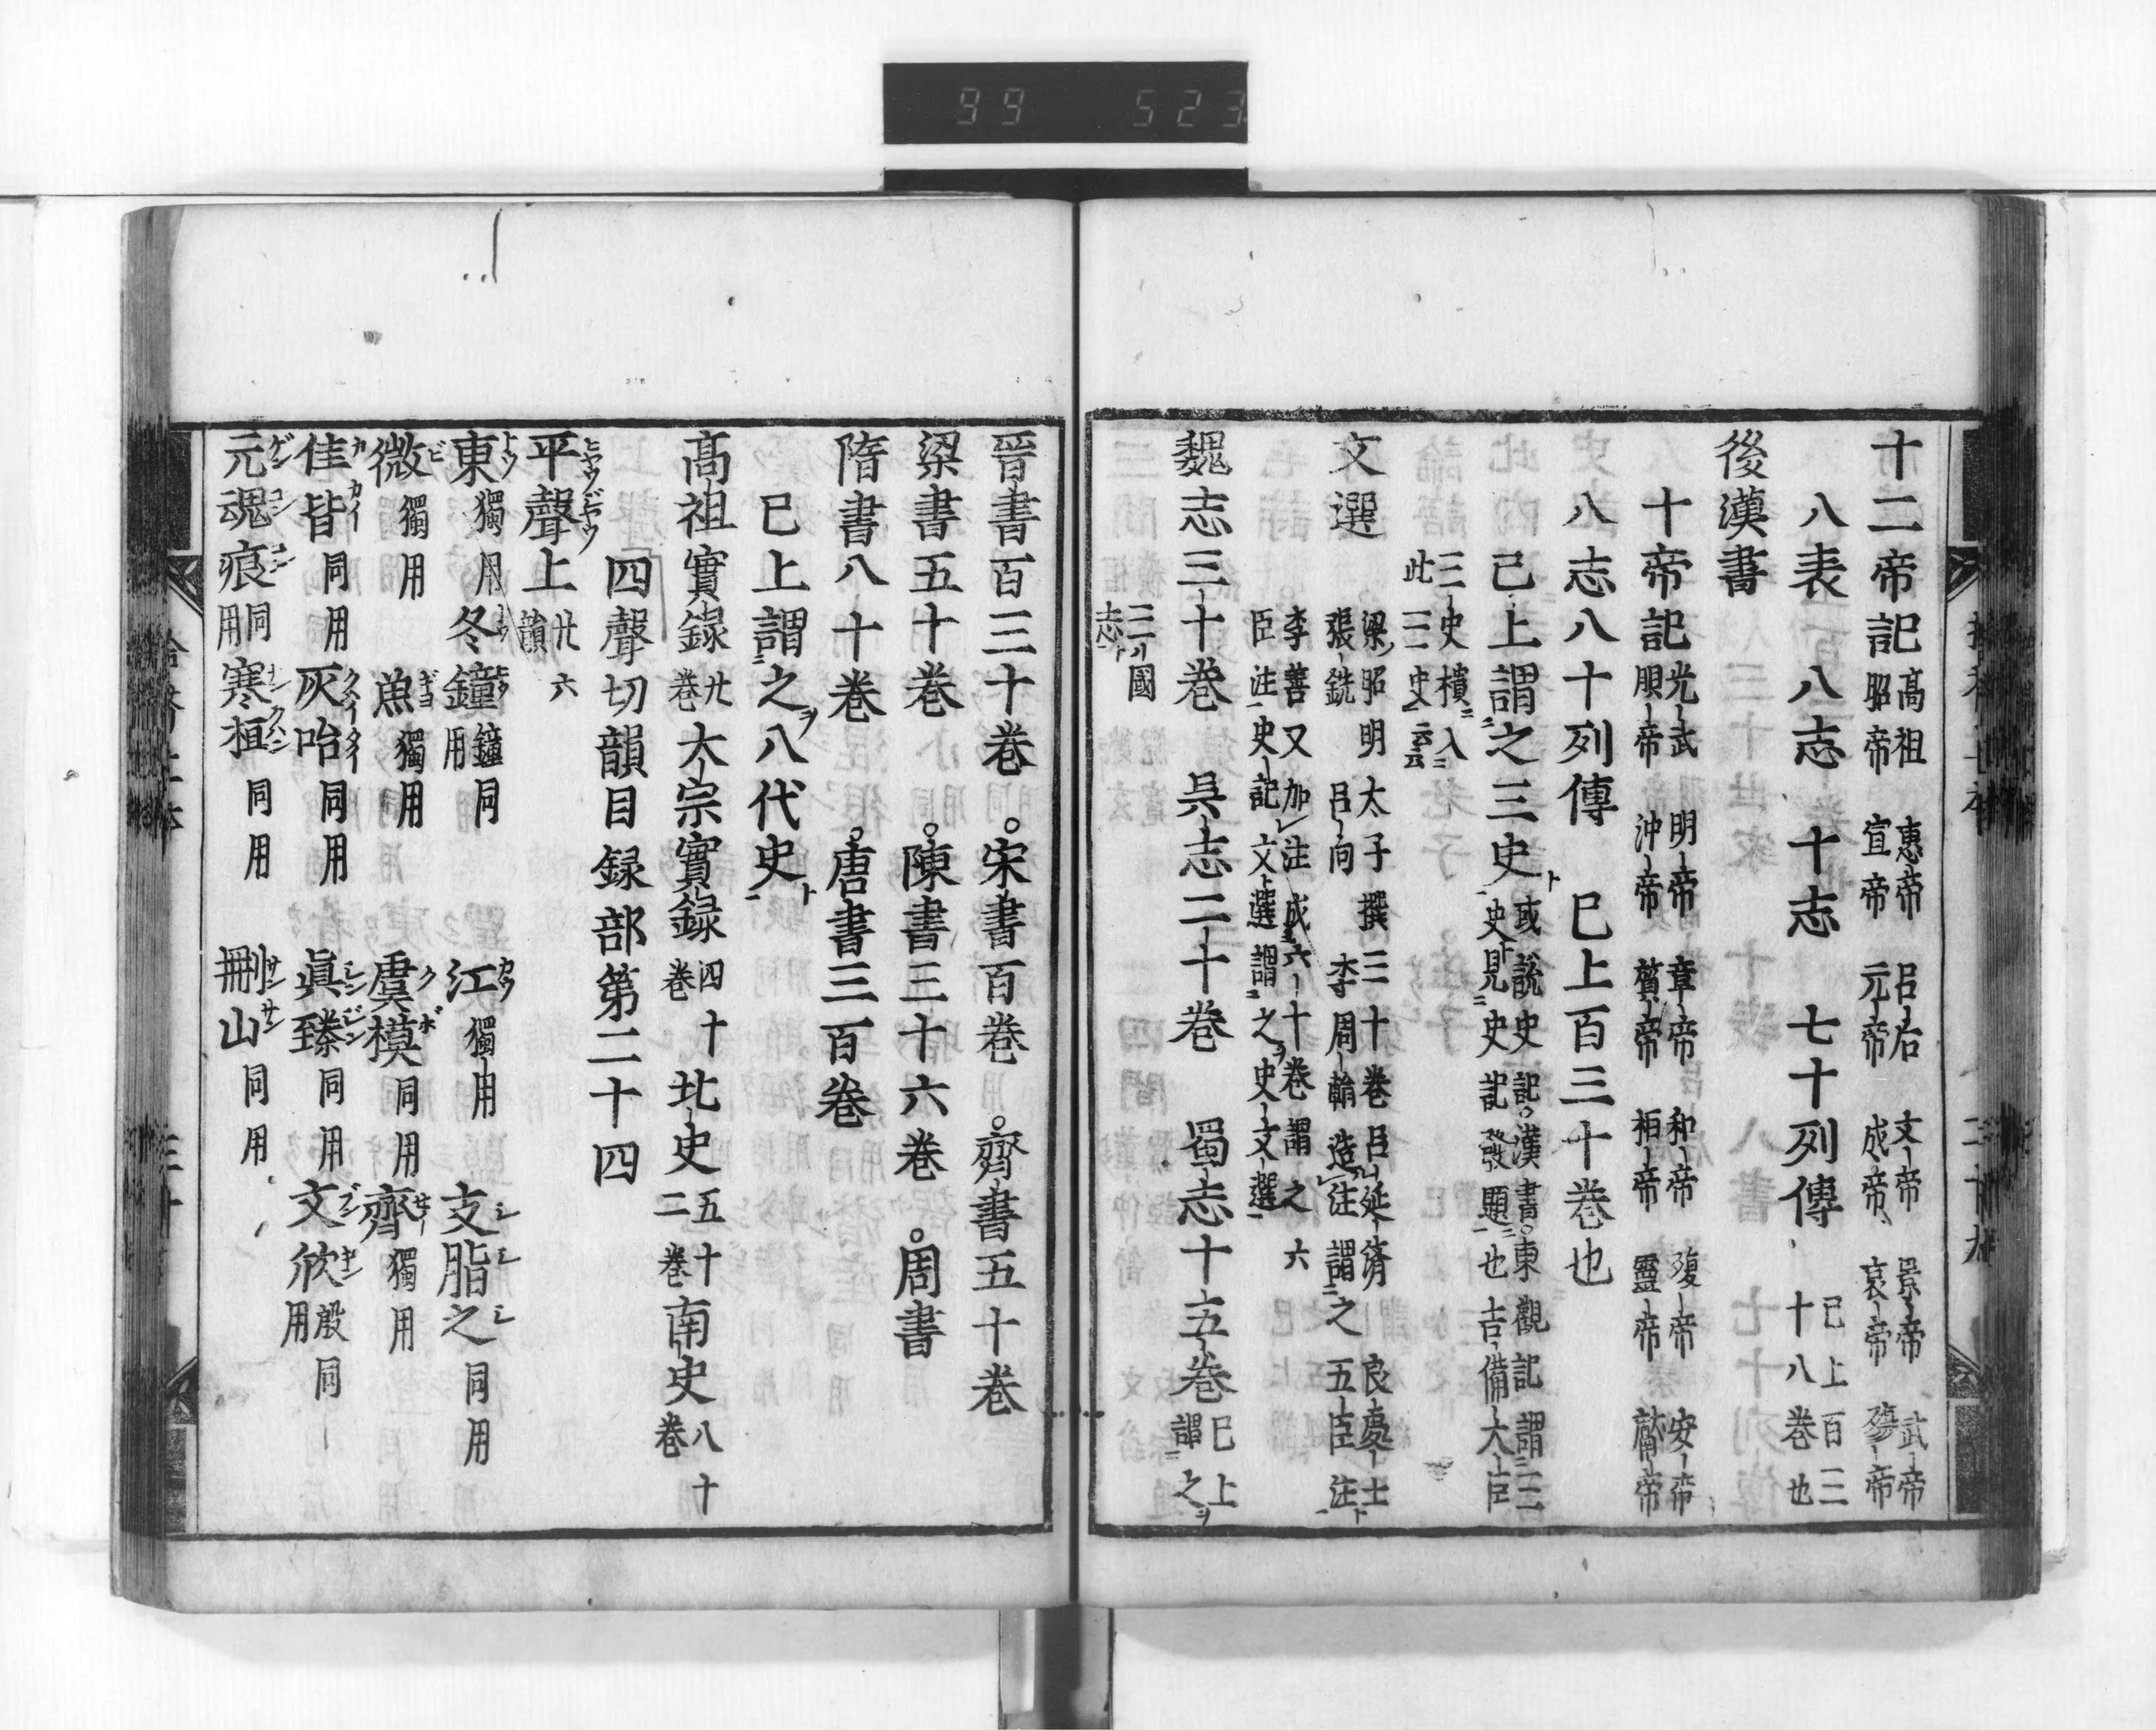 99 523
十二帝記 高祖 惠帝 呂后 文帝 景帝 武帝
昭帝 宣帝 元帝 成帝 哀帝 殤帝
八表 八志 十志 七十列傳 已上百三
十八巻也
後漢書
十帝記 光武 明帝 章帝 和帝 殤帝 安帝
順帝 沖帝 質帝 桓帝 靈帝 獻帝
八志八十列傳 已上百三十巻也
已上謂之三史ト 或説史記漢書東觀記謂三
史見史記發題也吉備大臣
三史櫃入
此三史云云
文選 梁昭明太子撰三十巻呂延濟 良劉士
張銑 呂向 李周翰造注謂之五臣注
李善又加注成六十巻謂之六
臣注史記文選謂之史文選
魏志三十巻 呉志二十巻 蜀志十五巻 已上
謂之
三國
志
晉書百三十巻 宋書百巻 齊書五十巻
梁書五十巻 陳書三十六巻 周書
隋書八十巻 唐書三百巻
已上謂之八代史ト
髙祖實録 廿巻 太宗實録 四十巻 北史 五十二巻 南史 八十巻
四聲切韻目録部第二十四
平聲上 廿六韻
東 獨用 冬鐘 鐘同用 江 獨用 支脂之 同用
微 獨用 魚 獨用 虞模 同用 齊 獨用
佳皆 同用 灰咍 同用 眞臻 同用 文欣 殷同用
元魂痕 同用 寒桓 同用 刪山 同用